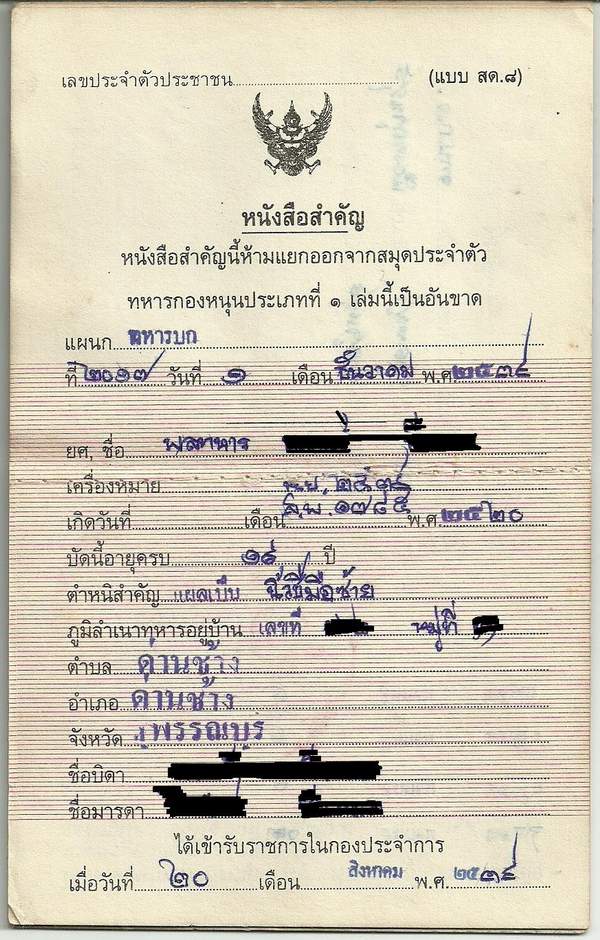 เลขประจำตัวประชาชน (แบบ สด.๘)
หนังสือสำคัญ
หนังสือสำคัญนี้ห้ามแยกออกจากสมุดประจำตัว
ทหารกองหนุนประเภทที่ ๑ เล่มนี้เป็นอันขาด
แผนก ทหารบก
ที่ ๒๐๑๗ วันที่ ๑ เดือน ธันวาคม พ.ศ. ๒๕๓๙
ยศ, ชื่อ พลทหาร
เครื่องหมาย
เกิดวันที่ เดือน พ.ศ ๒๕๒๐
บัดนี้อายุครบ ๑๙ ปี
ตำหนิสำคัญ แผลเป็น นิ้วชี้มือซ้าย
ภูมิลำเนาทหารอยู่บ้าน เลขที่ หมู่ที่
ตำบล ด่านช้าง
อำเภอ ด่านช้าง
จังหวัด สุพรรณบุรี
ชื่อบิดา
ชื่อมารดา
ได้เข้ารับราชการในกองประจำการ
เมื่อวันที่ ๒๐ เดือน สิงหาคม พ.ศ. ๒๕๓๙